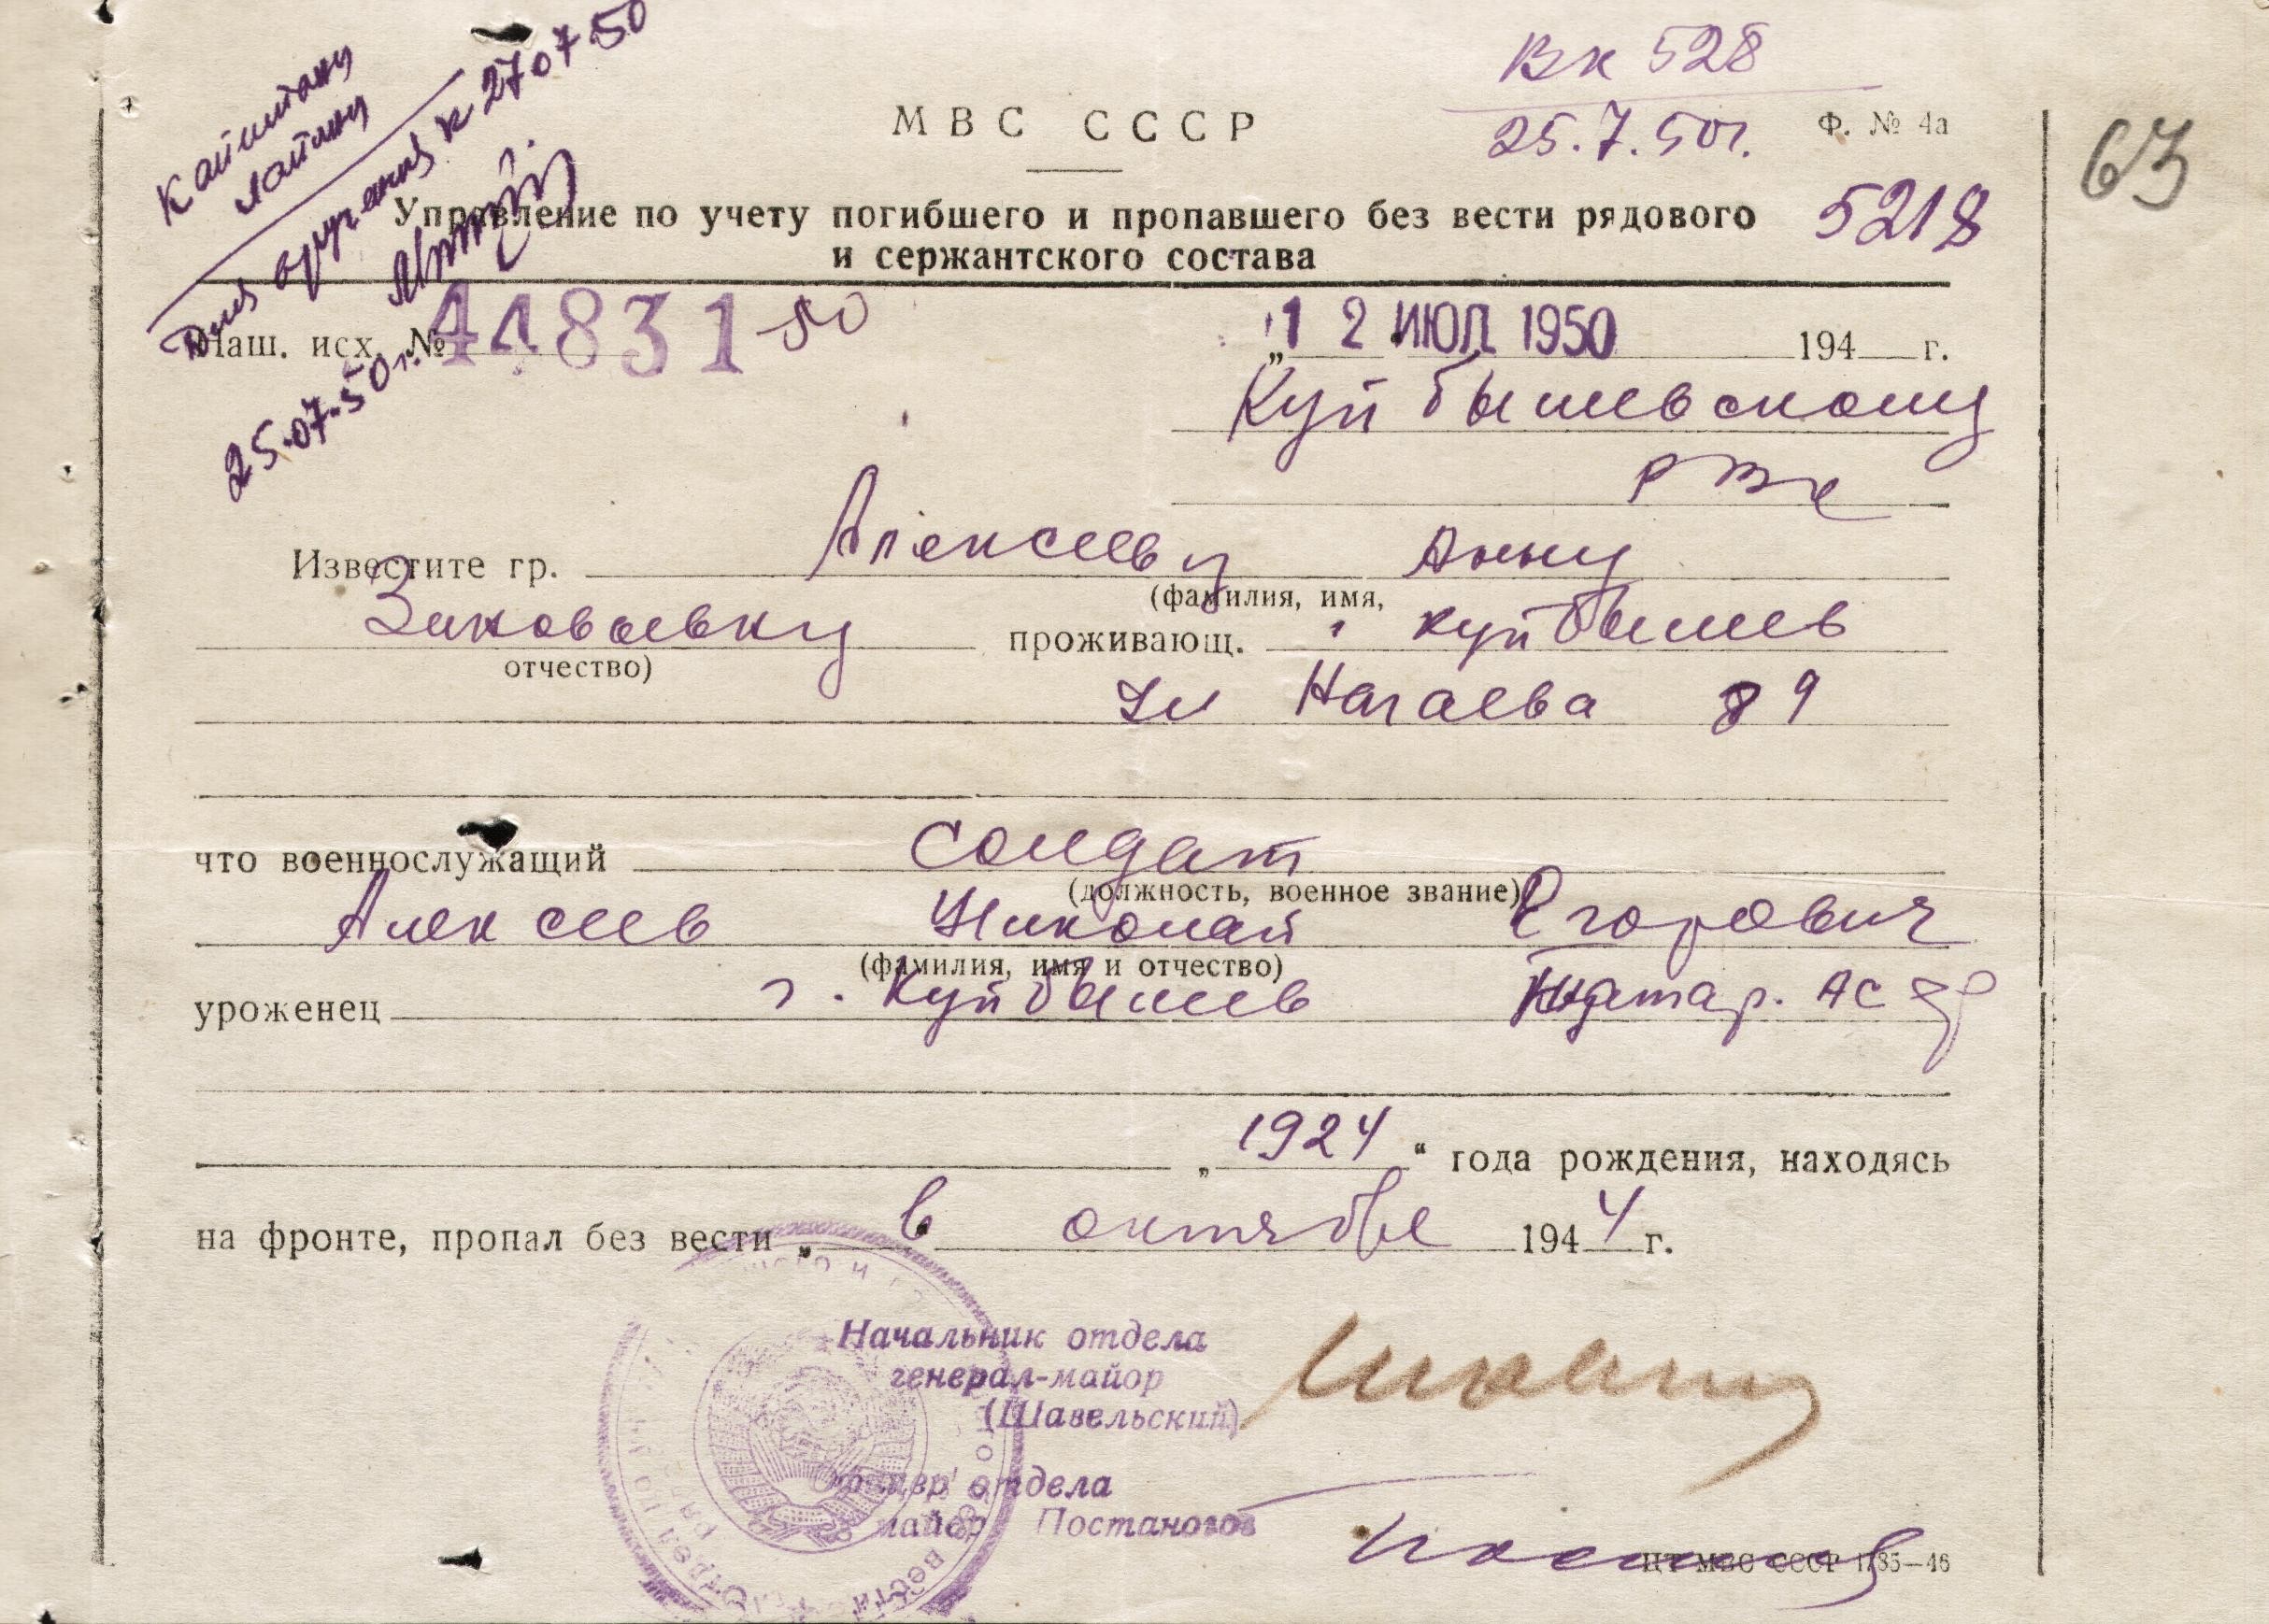 Капитану
Лапину
Для вручения к 27.07.50
25.07.50 г.
Вк 528
25.7.50г.
МВС СССР
Ф. № 4а
63
Управление по учету погибшего и пропавшего без вести рядового
и сержантского состава
5218
Наш. исх. № 44831 50
„12 ИЮЛ 1950 194 г.
Куйбышевскому
РВК
Известите гр. Алексееву Анну
(фамилия, имя,
проживающ. г Куйбышев
отчество)
Ул Нагаева 89
что военнослужащий солдат
(должность, военное звание)
Алексеев Николай Егорович
(фамилия, имя и отчество)
уроженец г. Куйбышев Татар. АССР
„1924“ года рождения, находясь
на фронте, пропал без вести „ в октябре 1944 г.
Начальник отдела
генерал-майор
(Шавельский)
офицер отдела
майор Постаногов
ЦТ МВС СССР 1785—46